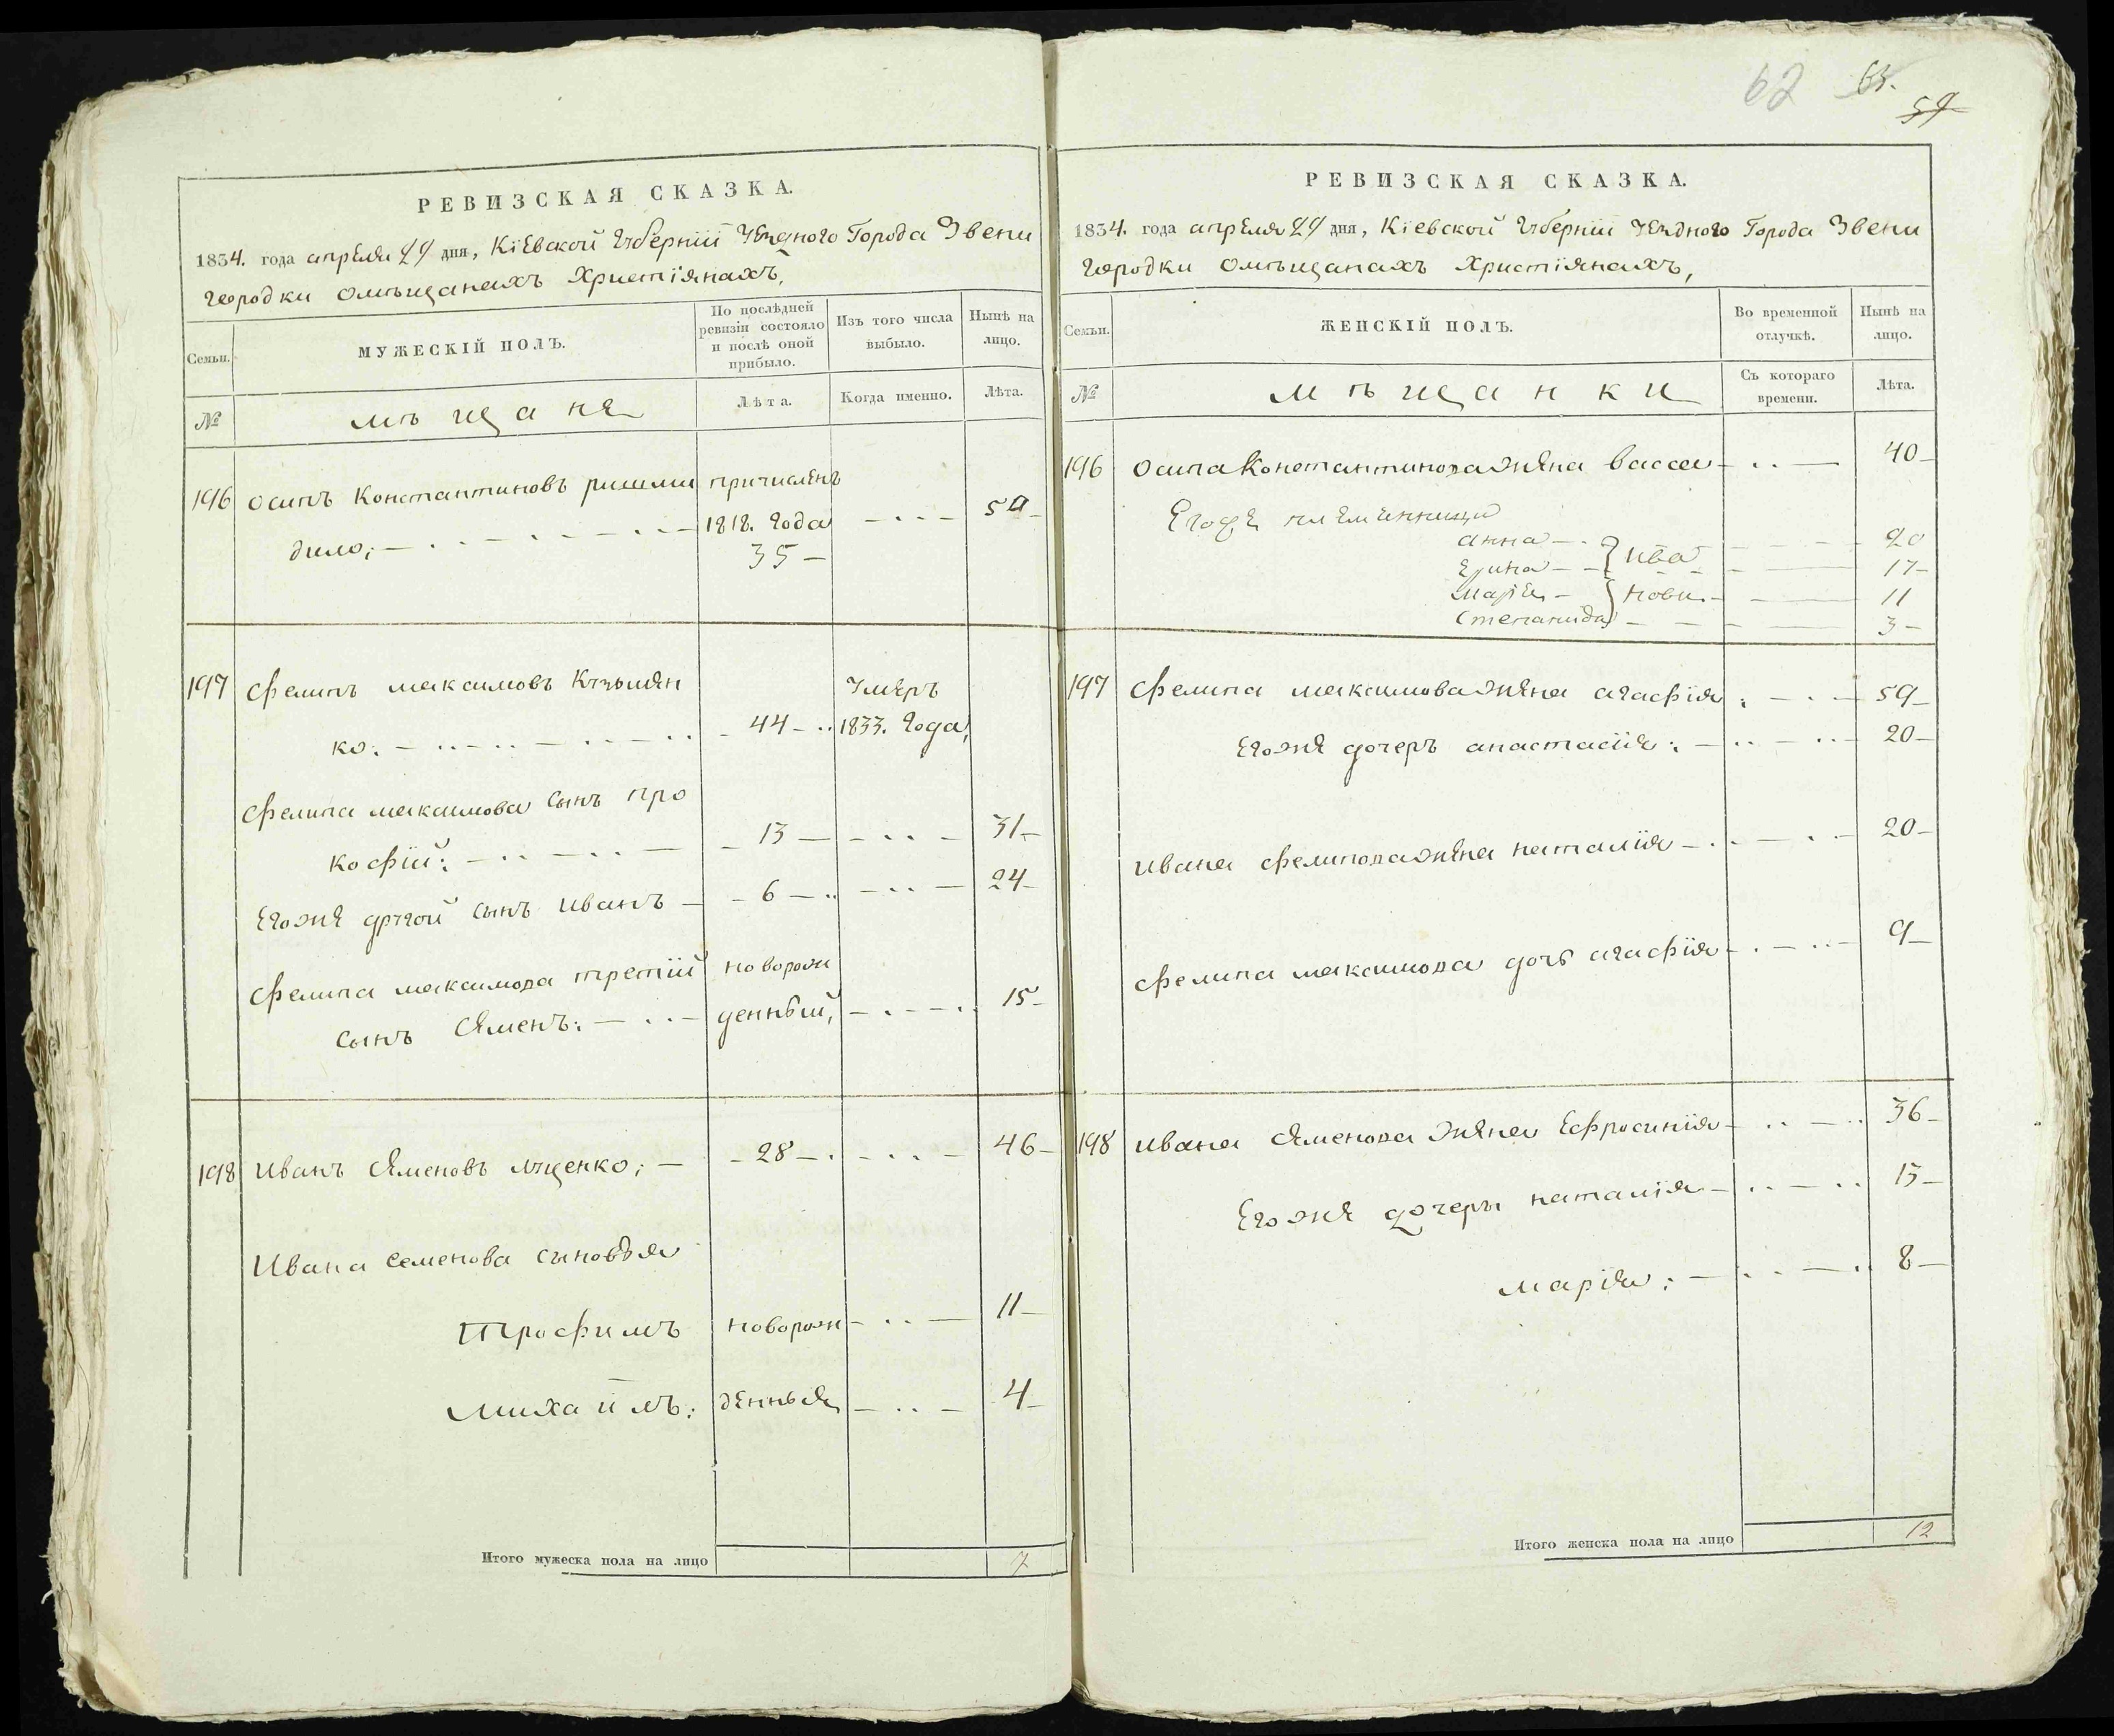 62 63.
59
РЕВИЗСКАЯ СКАЗКА.
1834. года апреля 29 дня, Кіевской Губерніи Уезднаго Города Звени
городки омѣщанахъ Христіянахъ,
Семьи.
МУЖЕСКІЙ ПОЛЪ.
По послѣдней
ревизіи состояло
и послѣ оной
прибыло.
Изъ того числа
выбыло.
Нынѣ на
лицо.
№
мѣщане
Лѣта.
Когда именно.
Лѣта.
196 Осипъ Константиновъ причисленъ
дило; 1818. года 59
35
197 Филипъ максимовъ Кузьмен умеръ
ко: 44 1833. года,
Филипа максимова сынъ про
кофій: 13 31
Егоже другой сынъ иванъ 6 24
Филипа максимова третій новорож
сынъ Семенъ: денный, 15
198 Иванъ Семеновъ Луценко; 28 46
Ивана семенова сыновья
Трофимъ новорож 11
Михаилъ: денныя 4
Итого мужеска пола на лицо 7
РЕВИЗСКАЯ СКАЗКА.
1834. года апреля 29 дня, Кіевской Губерніи Уездного Города Звени
городки омѣщанахъ Христіянахъ,
Семьи.
ЖЕНСКІЙ ПОЛЪ.
Во временной
отлучкѣ.
Нынѣ на
лицо.
№
мѣщанки
Съ котораго
времени.
Лѣта.
196 Осипа Константинова жена Васса 40
Егоже племенници
анна 20
Ива
Ерина 17
Марія нови 11
Степанида 3
197 Филипа максимова жена агафія: 59
Егоже дочеръ анастасія: 20
Ивана филипова жена наталія 20
Филипа максимова дочъ агафія 9
198 Ивана Семенова жена Ефросинія 36
Егоже дочеры наталія 13
марія: 8
Итого женска пола на лицо 12